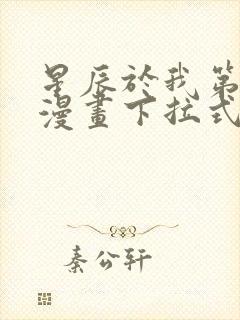 星辰於我第
漫畫下拉式
秦公轩